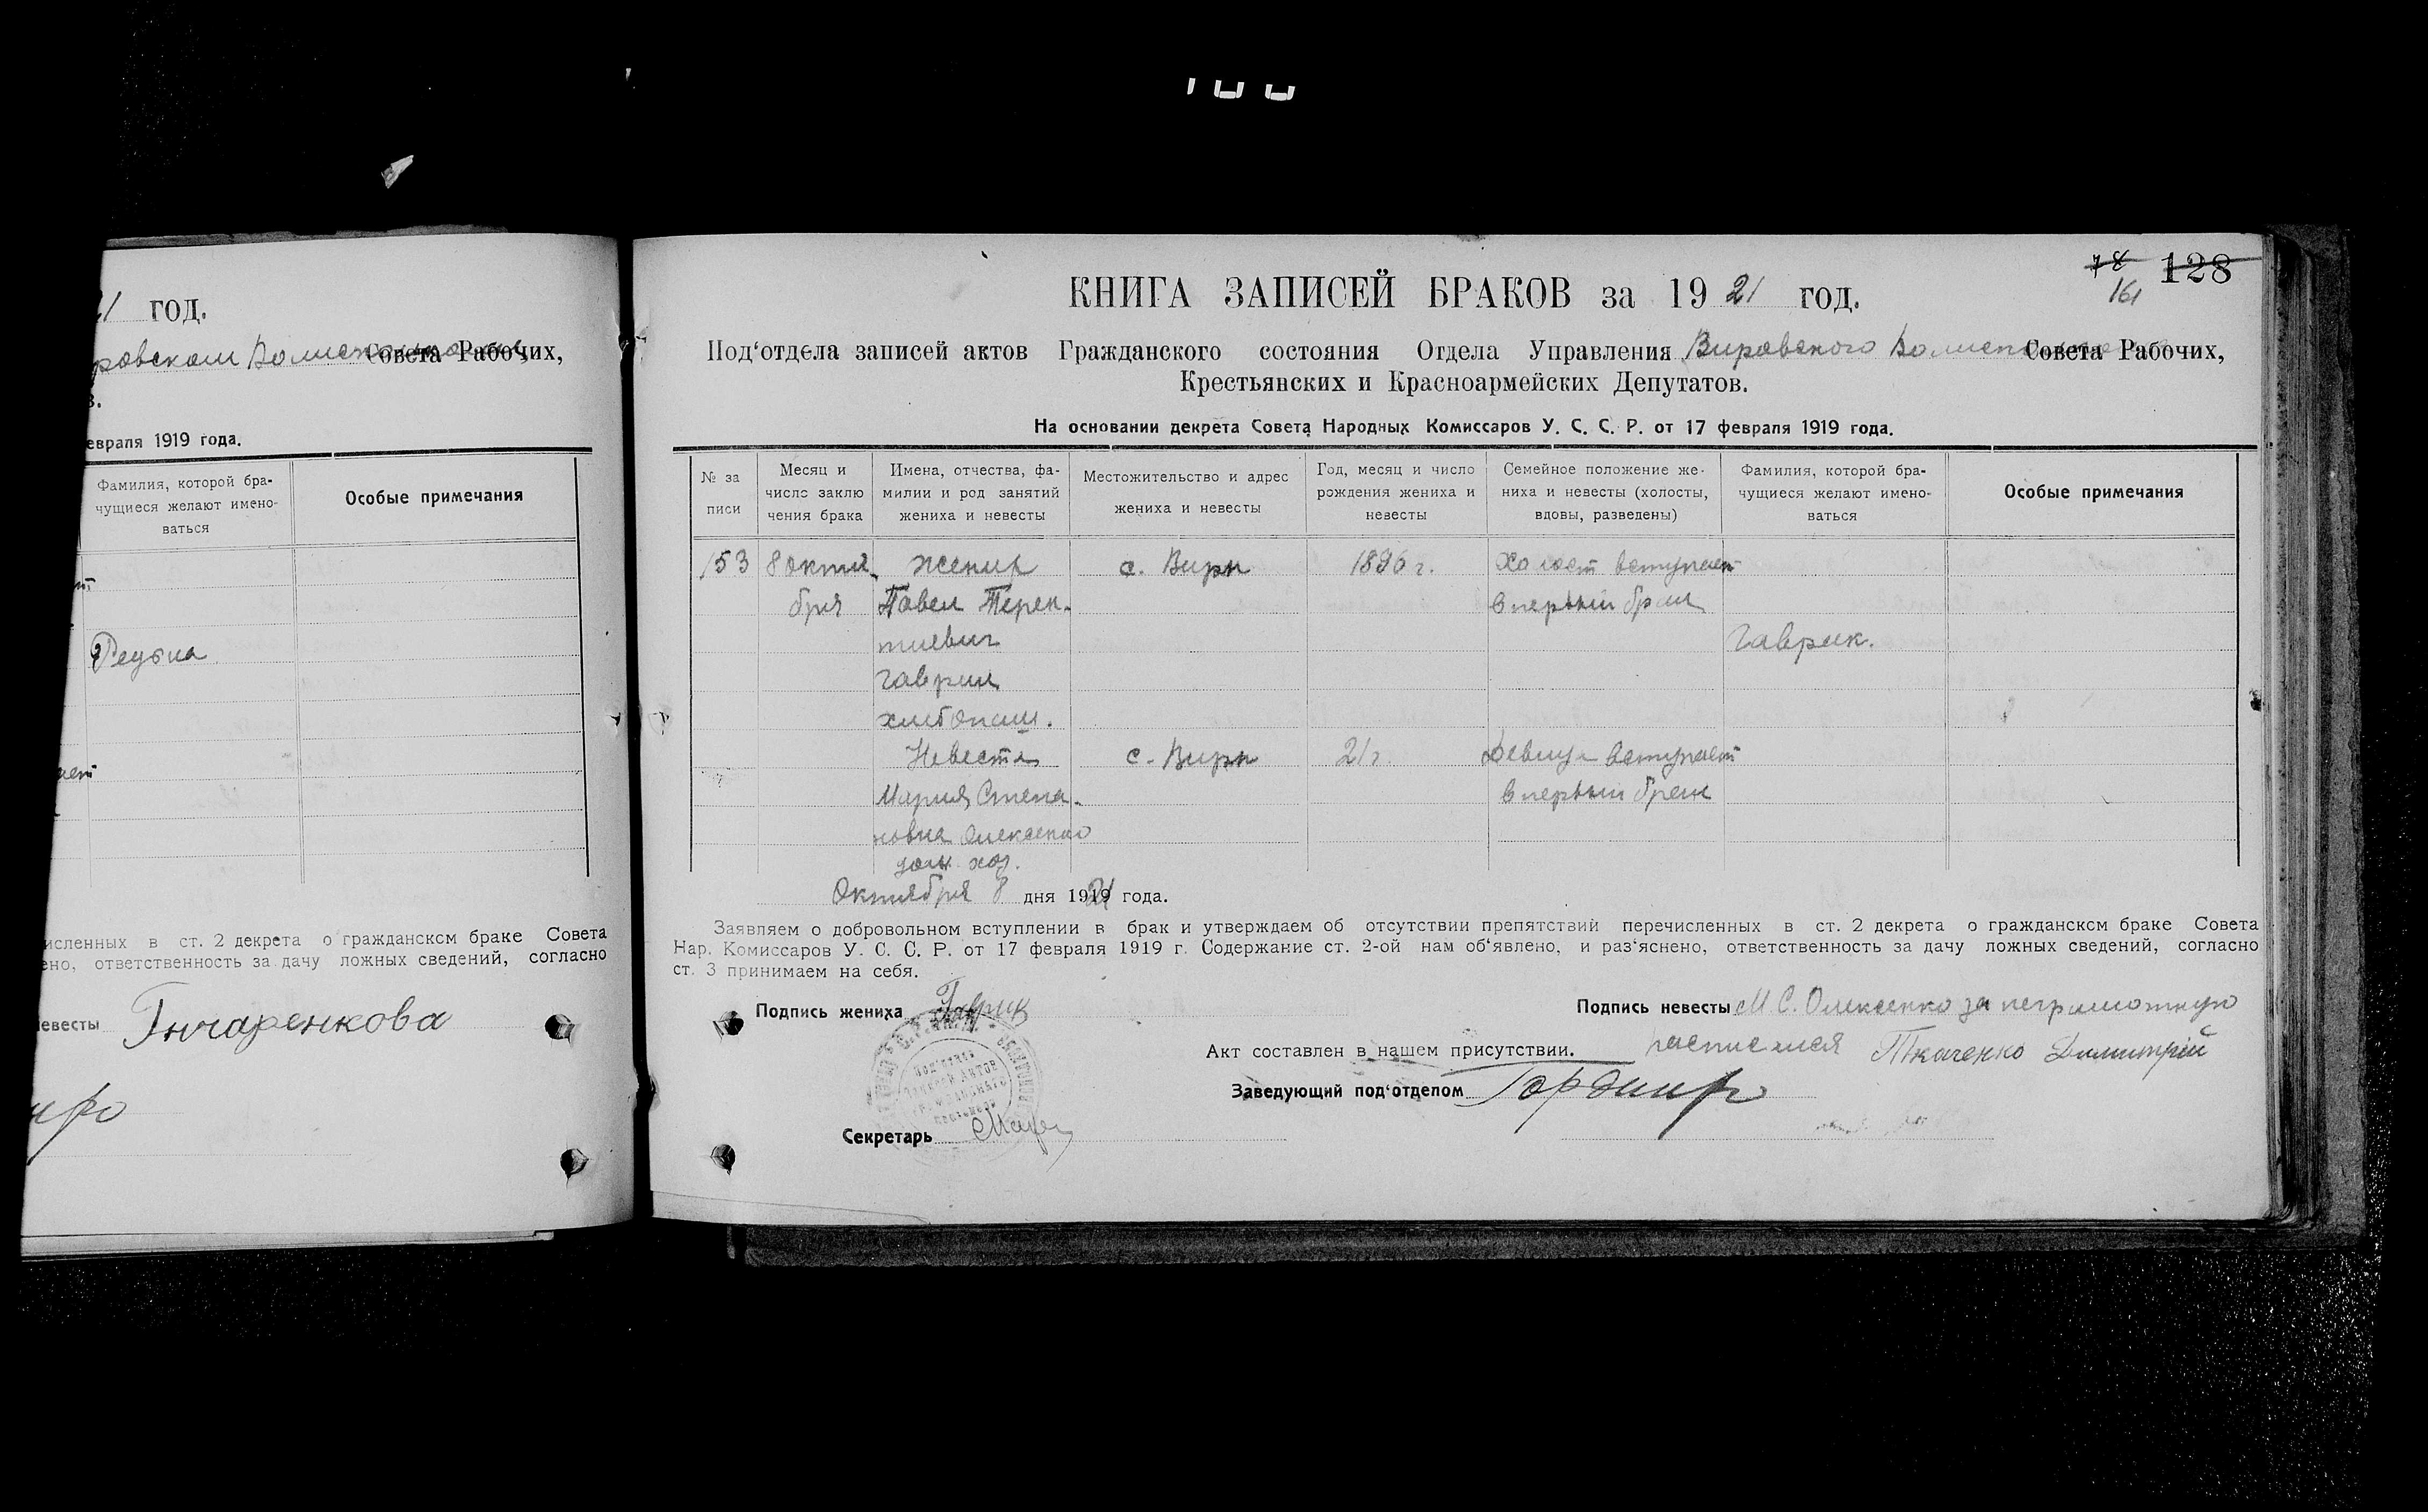 21 год.
Совета Рабочих,
в.
евраля 1919 года.
Фамилия, которой бра-
чущиеся желают имено-
ваться
Особые примечания
исленных в ст. 2 декрета о гражданскcм браке Совета
ено, ответственность за дачу ложных сведений, согласно
невесты Гнчаренкова
78 128
161
КНИГА ЗАПИСЕЙ БРАКОВ за 1921 год.
Под‘отдела записей актов Гражданского состояния Отдела Управления Вировского Совета Рабочих,
Крестьянских и Красноармейских Депутатов.
На основании декрета Совета Народных Комиссаров У. С. С. Р. от 17 февраля 1919 года.
№ за
писи
Месяц и
число заклю
чения брака
Имена, отчества, фа-
милии и род занятий
жениха и невесты
Местожительство и адрес
жениха и невесты
Год, месяц и число
рождения жениха и
невесты
Семейное положение же-
ниха и невесты (холосты,
вдовы, разведены)
Фамилия, которой бра-
чущиеся желают имено-
ваться
Особые примечания
153 8 Октя- жених с. Вири 1896 г. Холост вступает
бря Павел Терен- в первый брак
тиевич Гаврик.
Гаврик
хлебопаш.
Невеста с. Вири 21 г. Девица вступает
Мария Степа- в первый брак
новна Олексенко
дом. хоз.
Октября 8 дня 1921 года.
Заявляем о добровольном вступлении в брак и утверждаем об отсутствии препятствий перечисленных в ст. 2 декрета о гражданскcм браке Совета
Нар. Комиссаров У. С. С. Р. от 17 февраля 1919 г. Содержание ст. 2-ой нам об‘явлено, и раз‘яснено, ответственность за дачу ложных сведений, согласно
ст. 3 принимаем на себя.
Подпись жениха Гаврик
Подпись невесты М С. Олексенко за неграмотную
расписался Ткаченко Димитрий
Акт составлен в нашем присутствии.
Заведующий под‘отделом
Секретарь